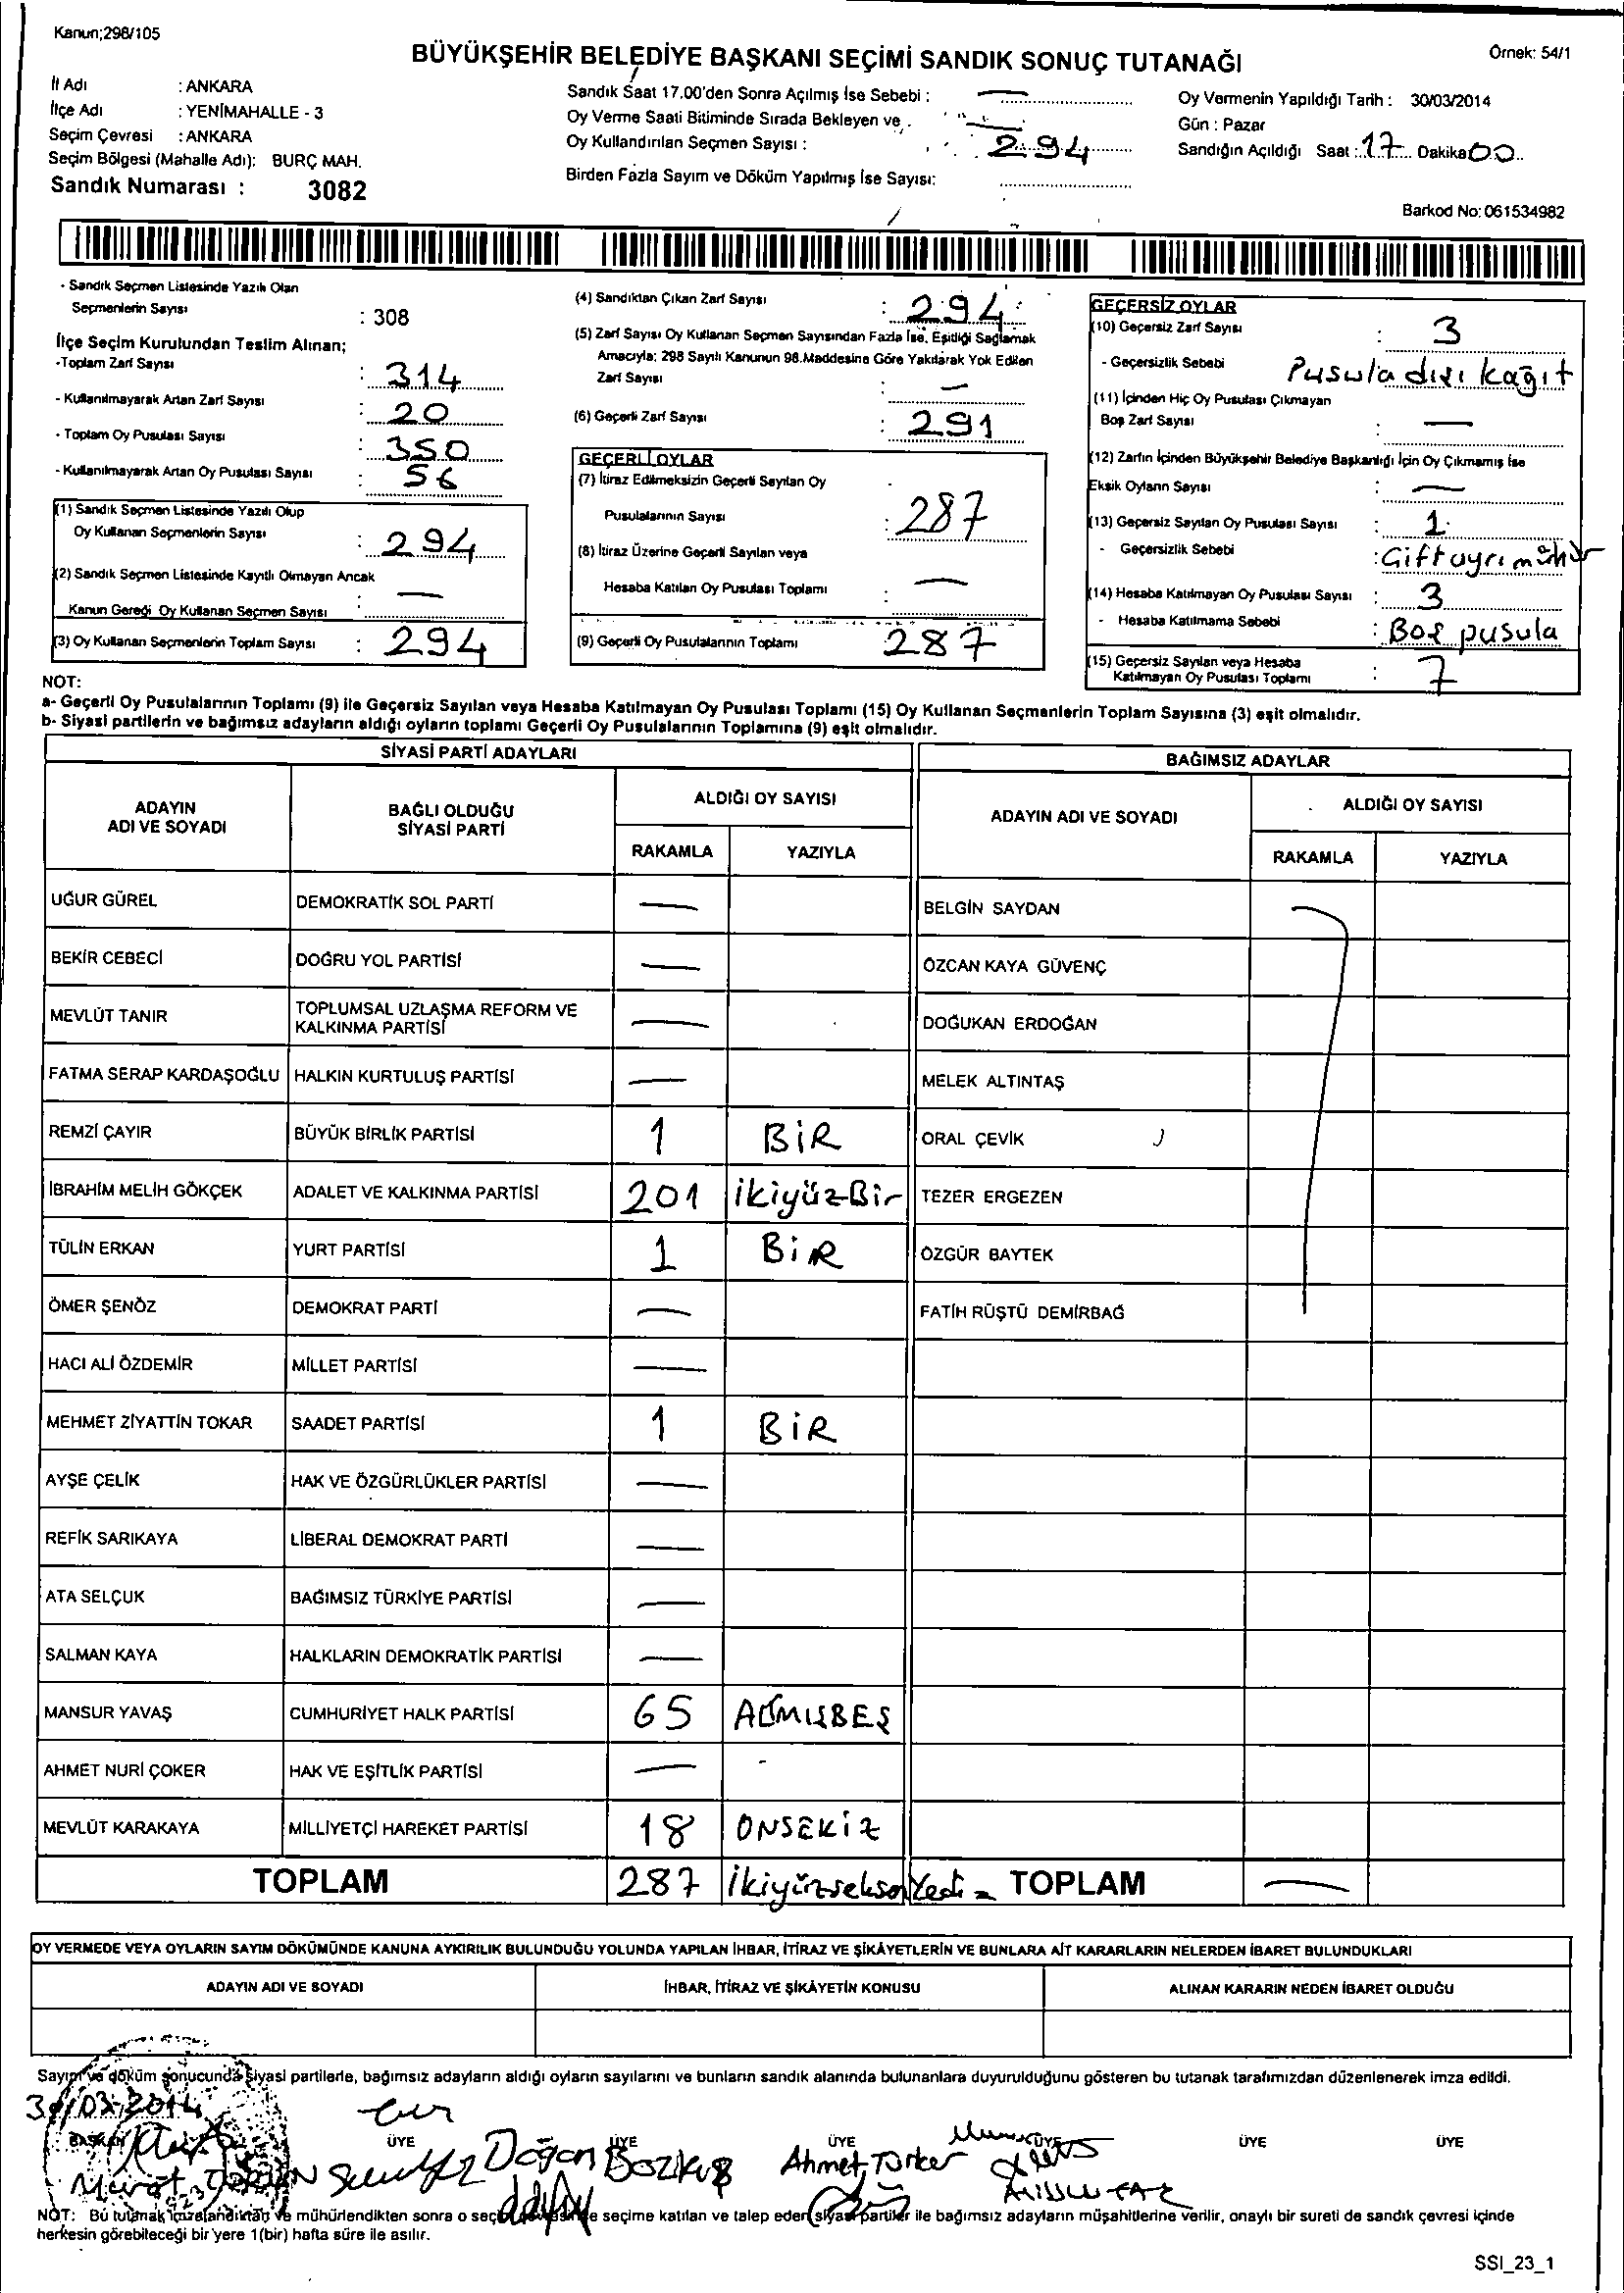 Kanun;298/105
BÜYÜKŞEHİR BELEDİYE BAŞKANI SEÇİMİ SANDIK SONUÇ TUTANAĞI
Örnek: 54/1
İl Adı : ANKARA
İlçe Adı : YENİMAHALLE - 3
Seçim Çevresi : ANKARA
Seçim Bölgesi (Mahalle Adı): BURÇ MAH.
Sandık Numarası : 3082
Sandık Saat 17.00'den Sonra Açılmış İse Sebebi : —
Oy Verme Saati Bitiminde Sırada Bekleyen ve
Oy Kullandırılan Seçmen Sayısı : 294
Birden Fazla Sayım ve Döküm Yapılmış İse Sayısı:
Oy Vermenin Yapıldığı Tarih : 30/03/2014
Gün : Pazar
Sandığın Açıldığı Saat : 17 Dakika 00
Barkod No: 061534982
- Sandık Seçmen Listesinde Yazılı Olan
Seçmenlerin Sayısı : 308
İlçe Seçim Kurulundan Teslim Alınan;
-Toplam Zarf Sayısı : 314
- Kullanılmayarak Artan Zarf Sayısı : 20
- Toplam Oy Pusulası Sayısı : 350
- Kullanılmayarak Artan Oy Pusulası Sayısı : 56
(1) Sandık Seçmen Listesinde Yazılı Olup
Oy Kullanan Seçmenlerin Sayısı : 294
(2) Sandık Seçmen Listesinde Kayıtlı Olmayan Ancak
Kanun Gereği Oy Kullanan Seçmen Sayısı : —
(3) Oy Kullanan Seçmenlerin Toplam Sayısı : 294
(4) Sandıktan Çıkan Zarf Sayısı : 294
(5) Zarf Sayısı Oy Kullanan Seçmen Sayısından Fazla İse, Eşitliği Sağlamak
Amacıyla: 298 Sayılı Kanunun 98.Maddesine Göre Yakılarak Yok Edilen
Zarf Sayısı : —
(6) Geçerli Zarf Sayısı : 291
GEÇERLİ OYLAR
(7) İtiraz Edilmeksizin Geçerli Sayılan Oy
Pusulalarının Sayısı : 287
(8) İtiraz Üzerine Geçerli Sayılan veya
Hesaba Katılan Oy Pusulası Toplamı : —
(9) Geçerli Oy Pusulalarının Toplamı 287
GEÇERSİZ OYLAR
(10) Geçersiz Zarf Sayısı : 3
- Geçersizlik Sebebi Pusula dışı kağıt
(11) İçinden Hiç Oy Pusulası Çıkmayan
Boş Zarf Sayısı : —
(12) Zarfın İçinden Büyükşehir Belediye Başkanlığı İçin Oy Çıkmamış İse
Eksik Oyların Sayısı : —
(13) Geçersiz Sayılan Oy Pusulası Sayısı : 1
- Geçersizlik Sebebi : Çift ayrı mühür
(14) Hesaba Katılmayan Oy Pusulası Sayısı : 3
- Hesaba Katılmama Sebebi : Boş pusula
(15) Geçersiz Sayılan veya Hesaba
Katılmayan Oy Pusulası Toplamı : 7
NOT:
a- Geçerli Oy Pusulalarının Toplamı (9) ile Geçersiz Sayılan veya Hesaba Katılmayan Oy Pusulası Toplamı (15) Oy Kullanan Seçmenlerin Toplam Sayısına (3) eşit olmalıdır.
b- Siyasi partilerin ve bağımsız adayların aldığı oyların toplamı Geçerli Oy Pusulalarının Toplamına (9) eşit olmalıdır.
SİYASİ PARTİ ADAYLARI
ADAYIN ADI VE SOYADI
BAĞLI OLDUĞU SİYASİ PARTİ
ALDIĞI OY SAYISI
RAKAMLA YAZIYLA
UĞUR GÜREL DEMOKRATİK SOL PARTİ —
BEKİR CEBECİ DOĞRU YOL PARTİSİ —
MEVLÜT TANIR TOPLUMSAL UZLAŞMA REFORM VE KALKINMA PARTİSİ —
FATMA SERAP KARDAŞOĞLU HALKIN KURTULUŞ PARTİSİ —
REMZİ ÇAYIR BÜYÜK BİRLİK PARTİSİ 1 BİR
İBRAHİM MELİH GÖKÇEK ADALET VE KALKINMA PARTİSİ 201 ikiyüzBir
TÜLİN ERKAN YURT PARTİSİ 1 BİR
ÖMER ŞENÖZ DEMOKRAT PARTİ —
HACI ALİ ÖZDEMİR MİLLET PARTİSİ —
MEHMET ZİYATTİN TOKAR SAADET PARTİSİ 1 BİR
AYŞE ÇELİK HAK VE ÖZGÜRLÜKLER PARTİSİ —
REFİK SARIKAYA LİBERAL DEMOKRAT PARTİ —
ATA SELÇUK BAĞIMSIZ TÜRKİYE PARTİSİ —
SALMAN KAYA HALKLARIN DEMOKRATİK PARTİSİ —
MANSUR YAVAŞ CUMHURİYET HALK PARTİSİ 65 ALTMIŞBEŞ
AHMET NURİ ÇOKER HAK VE EŞİTLİK PARTİSİ — -
MEVLÜT KARAKAYA MİLLİYETÇİ HAREKET PARTİSİ 18 ONSEKİZ
TOPLAM 287 İkiyüzseksenYedi
BAĞIMSIZ ADAYLAR
ADAYIN ADI VE SOYADI
ALDIĞI OY SAYISI
RAKAMLA YAZIYLA
BELGİN SAYDAN
ÖZCAN KAYA GÜVENÇ
DOĞUKAN ERDOĞAN
MELEK ALTINTAŞ
ORAL ÇEVİK
TEZER ERGEZEN
ÖZGÜR BAYTEK
FATİH RÜŞTÜ DEMİRBAĞ
TOPLAM —
OY VERMEDE VEYA OYLARIN SAYIM DÖKÜMÜNDE KANUNA AYKIRILIK BULUNDUĞU YOLUNDA YAPILAN İHBAR, İTİRAZ VE ŞİKÂYETLERİN VE BUNLARA AİT KARARLARIN NELERDEN İBARET BULUNDUKLARI
ADAYIN ADI VE SOYADI İHBAR, İTİRAZ VE ŞİKÂYETİN KONUSU ALINAN KARARIN NEDEN İBARET OLDUĞU
Sayım ve döküm sonucunda siyasi partilerle, bağımsız adayların aldığı oyların sayılarını ve bunların sandık alanında bulunanlara duyurulduğunu gösteren bu tutanak tarafımızdan düzenlenerek imza edildi.
30/03/2014
BAŞKAN ÜYE ÜYE ÜYE ÜYE ÜYE ÜYE
Murat Doğan Bozkuş Ahmet Türker
NOT: Bu tutanak imzalandıktan ve mühürlendikten sonra o seçim çevresinde seçime katılan ve talep eden siyasi partiler ile bağımsız adayların müşahitlerine verilir, onaylı bir sureti de sandık çevresi içinde
herkesin görebileceği bir yere 1(bir) hafta süre ile asılır.
SSI_23_1